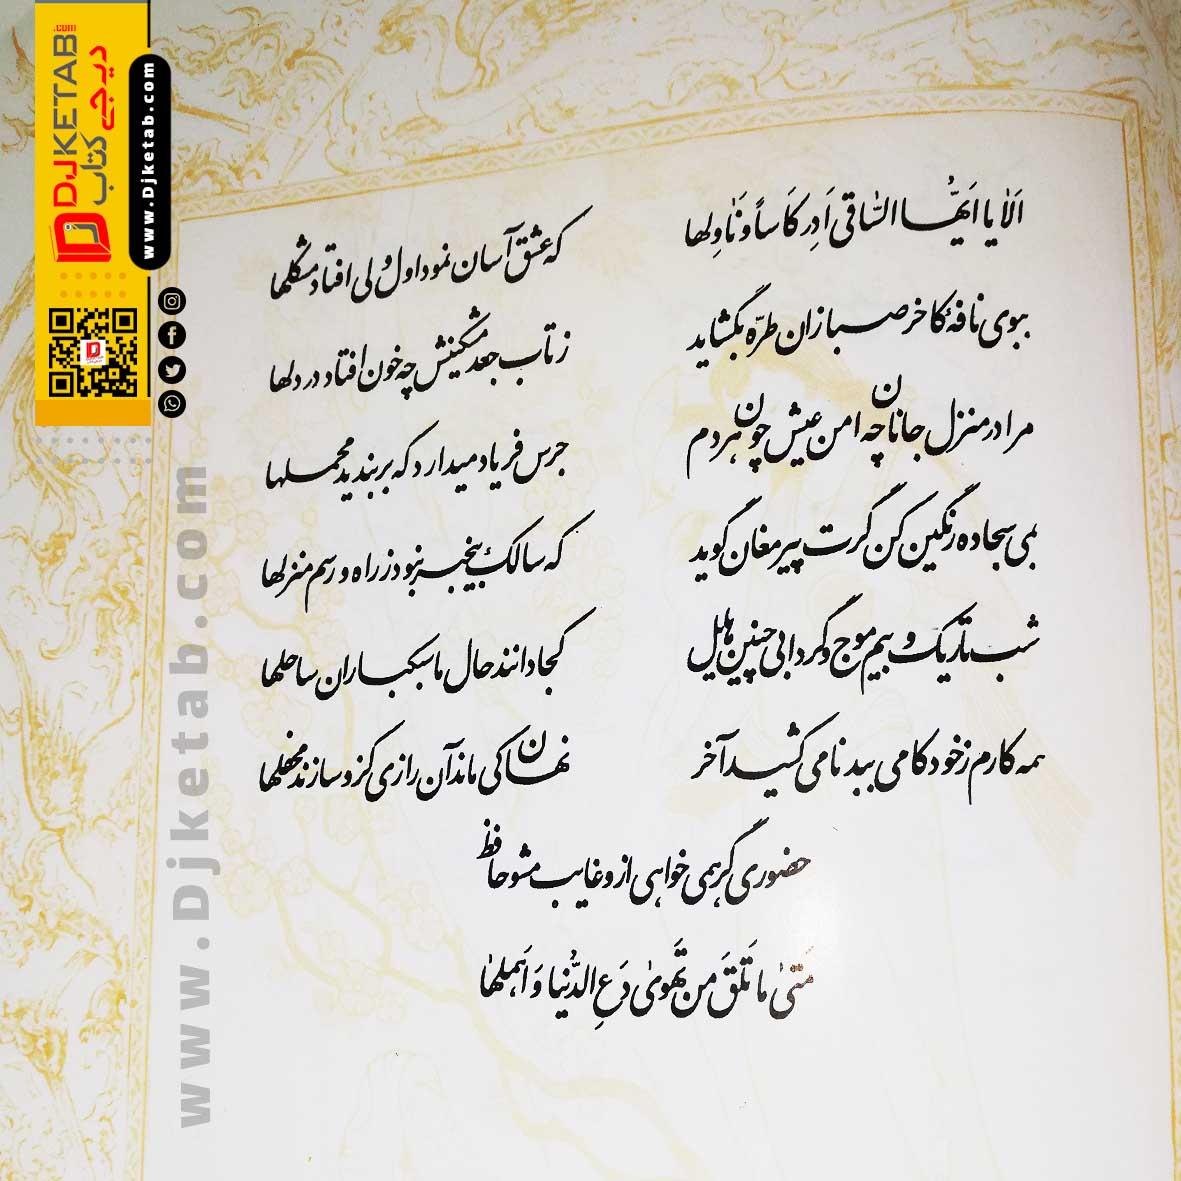 DJKETAB.com
دیجی کتاب
www.Djketab.com
www.Djketab.com
اَلٰا یا اَیُّها السّٰاقی اَدِر کَاساً وَ نٰاوِلها
که عشق آسان نمود اول ولی افتاد مشگلها
ببوی نافهٔ کاخر صبا زان طرّه بگشاید
ز تاب جعد مشگینش چه خون افتاد در دلها
مرا در منزل جانان چه امن عیش چون هردم
جرس فریاد میدارد که بربندید محملها
بمی سجاده رنگین کن گرت پیر مغان گوید
که سالک بیخبر نبود ز راه و رسم منزلها
شب تاریک و بیم موج و گردابی چنین هایل
کجا دانند حال ما سبکباران ساحلها
همه کارم ز خود کامی ببد نامی کشید آخر
نهان کی ماند آن رازی کزو سازند محفلها
حضوری گر همی خواهی ازو غایب مشو حافظ
مَتیٰ ما تَلقَ مَن تَهویٰ دَعِ الدُّنیا وَ اَهملهٰا